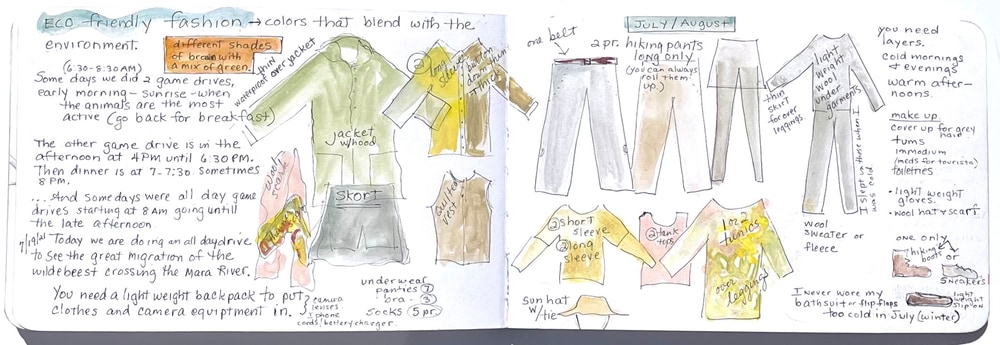 ECO friendly fashion → colors that blend with the
environment.
different shades
of brown with
a mix of green.
(6:30-8:30AM)
Some days we did 2 game drives,
early morning - sunrise - when
the animals are the most
active (go back for breakfast)
The other game drive is in the
afternoon at 4PM until 6:30PM.
Then dinner is at 7-7:30. Sometimes
8PM.
... And some days were all day game
drives starting at 8AM going until
the late afternoon
7/19/21 Today we are doing an all day drive
to see the great migration of the
wildebeest crossing the Mara River.
You need a light weight backpack to put
clothes and camera equiptment in.
camera
lenses
I phone
cords/battery charger.
thin
waterproof over jacket
jacket
w/hood
SKORT
scarf
2 long
sleeve
button
down
thin
quilted
vest
underwear
panties 7
bra - 3
socks 5 pr.
one belt
2 pr. hiking pants
long only
(you can always
roll them
up.)
JULY/AUGUST
thin
skirt
for over
leggings
light
weight
wool
under
garments
I slept in these when I
was cold.
you need
layers.
cold mornings
& evenings
warm after-
noons.
make up
cover up for grey
hair
tums
immodium
(meds for tourista)
toiletries
• light weight
gloves.
• wool hat & scarf
2 short
sleeve
2 long
sleeve
2 tank
tops
1 or 2
tunics
over
leggings
wool
sweater or
fleece
one only
hiking
boots
or
sneakers
sun hat
w/tie
I never wore my
bathsuit or flip flops
too cold in July (winter)
light
weight
slip on